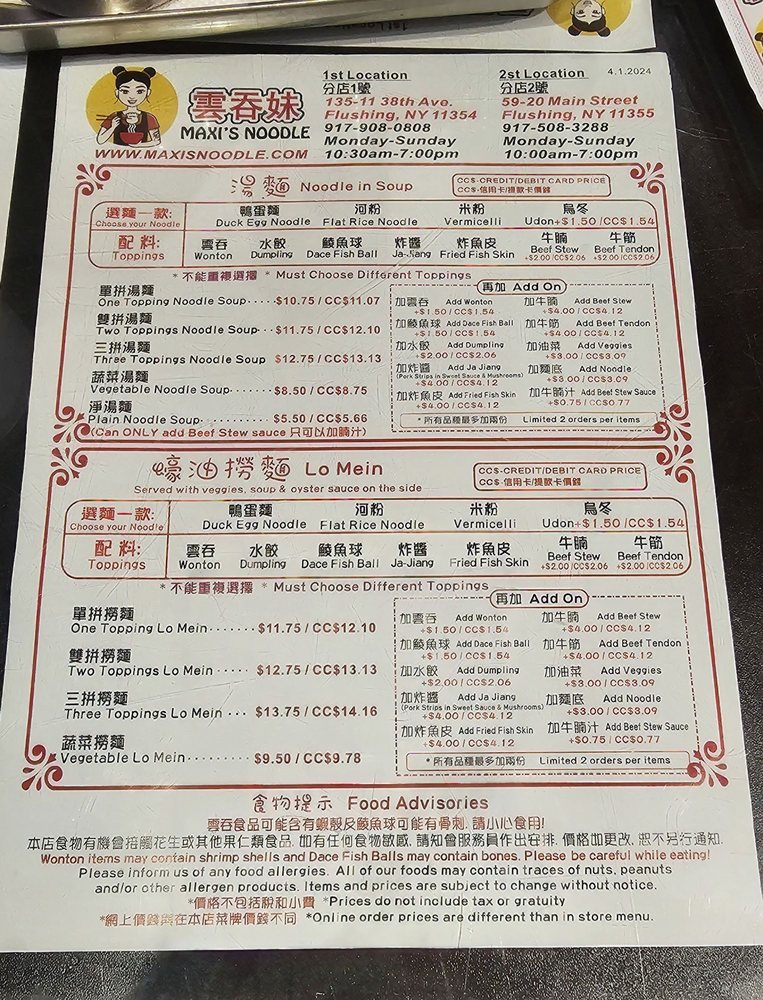 雲吞妹
MAXI'S NOODLE
WWW.MAXISNOODLE.COM
1st Location
分店1號
135-11 38th Ave.
Flushing, NY 11354
917-908-0808
Monday-Sunday
10:30am-7:00pm
2nd Location
分店2號
59-20 Main Street
Flushing, NY 11355
917-508-3288
Monday-Sunday
10:00am-7:00pm
4.1.2024
湯麵 Noodle in Soup
CC$-CREDIT/DEBIT CARD PRICE
CC$-信用卡/提款卡價錢
選麵一款: 鴨蛋麵 河粉 米粉 烏冬
Choose your Noodle Duck Egg Noodle Flat Rice Noodle Vermicelli Udon+$1.50/CC$1.54
配料: 雲吞 水餃 鯪魚球 炸醬 炸魚皮 牛腩 牛筋
Toppings Wonton Dumpling Dace Fish Ball Ja-Jiang Fried Fish Skin Beef Stew Beef Tendon
+$2.00/CC$2.06 +$2.00/CC$2.06
*不能重複選擇 * Must Choose Different Toppings
單拼湯麵
One Topping Noodle Soup····$10.75/CC$11.07
雙拼湯麵
Two Toppings Noodle Soup··$11.75/CC$12.10
三拼湯麵
Three Toppings Noodle Soup $12.75/CC$13.13
蔬菜湯麵
Vegetable Noodle Soup·······$8.50/CC$8.75
淨湯麵
Plain Noodle Soup··········$5.50/CC$5.66
(Can ONLY add Beef Stew sauce 只可以加腩汁)
再加 Add On
加雲吞 Add Wonton
+$1.50/CC$1.54
加鯪魚球 Add Dace Fish Ball
+$1.50/CC$1.54
加水餃 Add Dumpling
+$2.00/CC$2.06
加炸醬 Add Ja Jiang
(Pork Strips in Sweet Sauce & Mushrooms)
+$4.00/CC$4.12
加炸魚皮 Add Fried Fish Skin
+$4.00/CC$4.12
加牛腩 Add Beef Stew
+$4.00/CC$4.12
加牛筋 Add Beef Tendon
+$4.00/CC$4.12
加油菜 Add Veggies
+$3.00/CC$3.09
加麵底 Add Noodle
+$3.00/CC$3.09
加牛腩汁 Add Beef Stew Sauce
+$0.75/CC$0.77
*所有品種最多加兩份 Limited 2 orders per items
蠔油撈麵 Lo Mein
Served with veggies, soup & oyster sauce on the side
CC$-CREDIT/DEBIT CARD PRICE
CC$-信用卡/提款卡價錢
選麵一款: 鴨蛋麵 河粉 米粉 烏冬
Choose your Noodle Duck Egg Noodle Flat Rice Noodle Vermicelli Udon+$1.50/CC$1.54
配料: 雲吞 水餃 鯪魚球 炸醬 炸魚皮 牛腩 牛筋
Toppings Wonton Dumpling Dace Fish Ball Ja-Jiang Fried Fish Skin Beef Stew Beef Tendon
+$2.00/CC$2.06 +$2.00/CC$2.06
*不能重複選擇 * Must Choose Different Toppings
單拼撈麵
One Topping Lo Mein······$11.75/CC$12.10
雙拼撈麵
Two Toppings Lo Mein······$12.75/CC$13.13
三拼撈麵
Three Toppings Lo Mein···$13.75/CC$14.16
蔬菜撈麵
Vegetable Lo Mein········$9.50/CC$9.78
再加 Add On
加雲吞 Add Wonton
+$1.50/CC$1.54
加鯪魚球 Add Dace Fish Ball
+$1.50/CC$1.54
加水餃 Add Dumpling
+$2.00/CC$2.06
加炸醬 Add Ja Jiang
(Pork Strips in Sweet Sauce & Mushrooms)
+$4.00/CC$4.12
加炸魚皮 Add Fried Fish Skin
+$4.00/CC$4.12
加牛腩 Add Beef Stew
+$4.00/CC$4.12
加牛筋 Add Beef Tendon
+$4.00/CC$4.12
加油菜 Add Veggies
+$3.00/CC$3.09
加麵底 Add Noodle
+$3.00/CC$3.09
加牛腩汁 Add Beef Stew Sauce
+$0.75/CC$0.77
*所有品種最多加兩份 Limited 2 orders per items
食物提示 Food Advisories
雲吞食品可能含有蝦殼及鯪魚球可能有骨刺. 請小心食用!
本店食物有機會接觸花生或其他果仁類食品. 如有任何食物敏感, 請知會服務員作出安排. 價格如更改, 恕不另行通知.
Wonton items may contain shrimp shells and Dace Fish Balls may contain bones. Please be careful while eating!
Please inform us of any food allergies. All of our foods may contain traces of nuts, peanuts
and/or other allergen products. Items and prices are subject to change without notice.
*價格不包括稅和小費 *Prices do not include tax or gratuity
*網上價錢與在本店菜牌價錢不同 *Online order prices are different than in store menu.